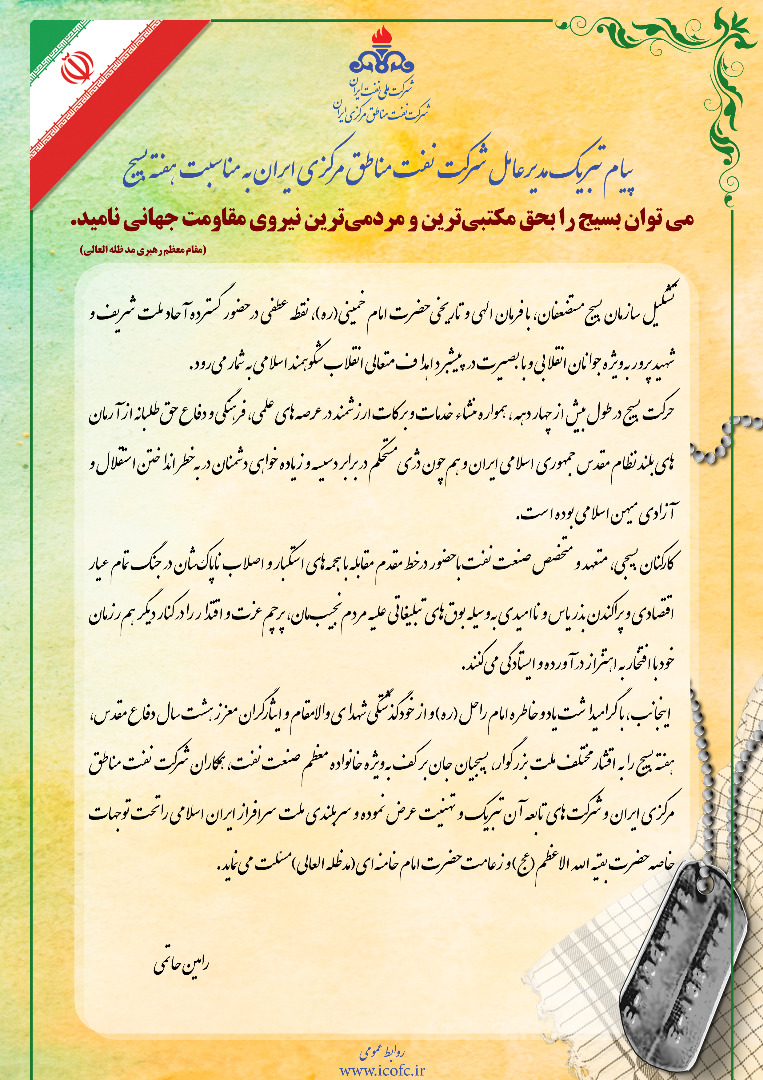 شرکت ملی نفت ایران
شرکت نفت مناطق مرکزی ایران
پیام تبریک مدیرعامل شرکت نفت مناطق مرکزی ایران به مناسبت هفته بسیج
می توان بسیج را بحق مکتبی‌ترین و مردمی‌ترین نیروی مقاومت جهانی نامید.
(مقام معظم رهبری مد ظله العالی)
تشکیل سازمان بسیج مستضعفان، با فرمان الهی و تاریخی حضرت امام خمینی(ره)، نقطه عطفی در حضور گسترده آحاد ملت شریف و
شهید پرور به ویژه جوانان انقلابی و با بصیرت در پیشبرد اهداف متعالی انقلاب شکوهمند اسلامی به شمار می رود.
حرکت بسیج در طول بیش از چهار دهه، همواره منشاء خدمات و برکات ارزشمند در عرصه های علمی، فرهنگی و دفاع حق طلبانه از آرمان
های بلند نظام مقدس جمهوری اسلامی ایران و هم چون دژی مستحکم در برابر دسیسه و زیاده خواهی دشمنان در به خطر انداختن استقلال و
آزادی میهن اسلامی بوده است.
کارکنان بسیجی، متعهد و متخصص صنعت نفت با حضور در خط مقدم مقابله با هجمه های استکبار و اصلاب ناپاک‌شان در جنگ تمام عیار
اقتصادی و پراکندن بذر یاس و ناامیدی به وسیله بوق های تبلیغاتی علیه مردم نجیب‌مان، پرچم عزت و اقتدار را در کنار دیگر هم رزمان
خود با افتخار به اهتزاز درآورده و ایستادگی می کنند.
اینجانب، با گرامیداشت یاد و خاطره امام راحل (ره) و از خودگذشتگی شهدای والامقام و ایثارگران معزز هشت سال دفاع مقدس،
هفته بسیج را به اقشار مختلف ملت بزرگوار، بسیجیان جان بر کف به ویژه خانواده معظم صنعت نفت، همکاران شرکت نفت مناطق
مرکزی ایران و شرکت های تابعه آن تبریک و تهنیت عرض نموده و سربلندی ملت سرافراز ایران اسلامی را تحت توجهات
خاصه حضرت بقیه الله الاعظم (عج) و زعامت حضرت امام خامنه ای (مدظله العالی) مسئلت می نماید.
رامین حاتمی
روابط عمومی
www.icofc.ir